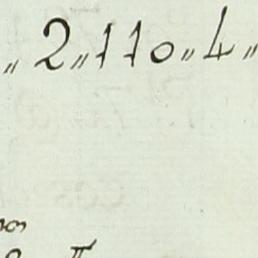 „ 2 „ 110 „ 4 „